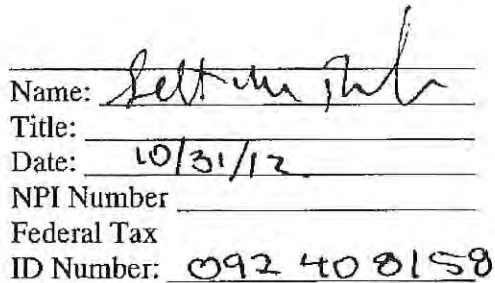 Name:
Title:
Date: 10/31/12
NPI Number
Federal Tax
ID Number: 092 40 8158